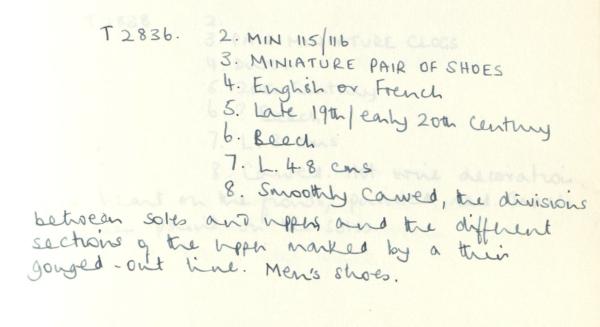 T 2836. 2. MIN 115/116
3. MINIATURE PAIR OF SHOES
4. English or French
5. Late 19th/early 20th century
6. Beech
7. L. 4.8 cms
8. Smoothly carved, the divisions
between soles and uppers, and the different
sections of the upper marked by a thin
gouged-out line. Men's shoes.